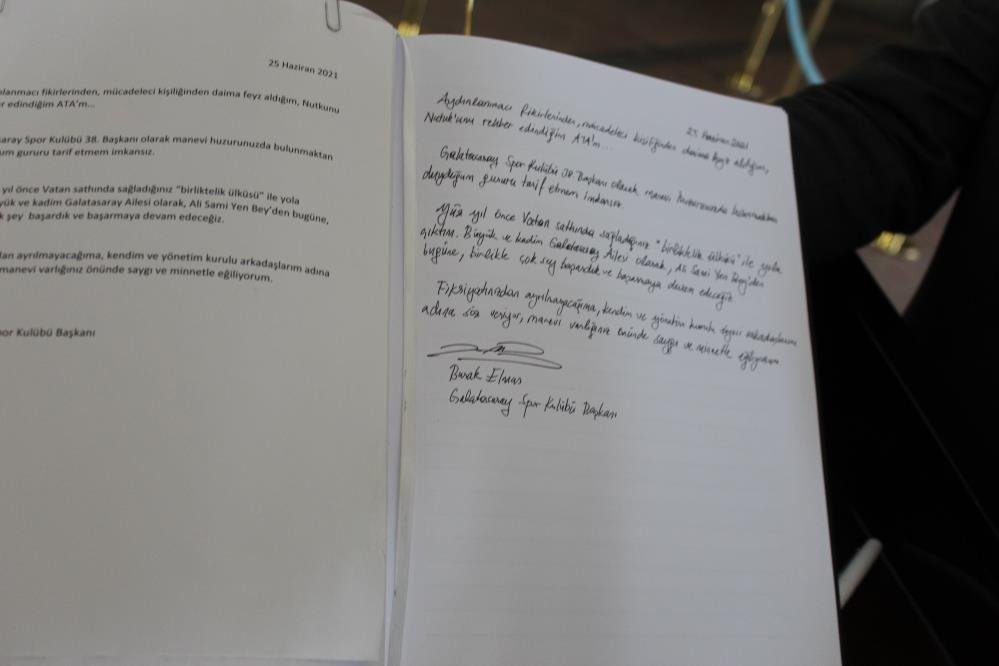 25 Haziran 2021
lanmacı fikirlerinden, mücadeleci kişiliğinden daima feyz aldığım, Nutkunu
r edindiğim ATA'm...
aray Spor Kulübü 38. Başkanı olarak manevi huzurunuzda bulunmaktan
um gururu tarif etmem imkansız.
yıl önce Vatan sathında sağladığınız "birliktelik ülküsü" ile yola
yük ve kadim Galatasaray Ailesi olarak, Ali Sami Yen Bey'den bugüne,
k şey başardık ve başarmaya devam edeceğiz.
dan ayrılmayacağıma, kendim ve yönetim kurulu arkadaşlarım adına
manevi varlığınız önünde saygı ve minnetle eğiliyorum.
por Kulübü Başkanı
25 Haziran 2021
Aydınlanmacı fikirlerinden, mücadeleci kişiliğinden daima feyz aldığım,
Nutuk'unu rehber edindiğim ATA'm...
Galatasaray Spor Kulübü 38 Başkanı olarak manevi huzurunuzda bulunmaktan
duyduğum gururu tarif etmem imkansız.
Yüz yıl önce Vatan sathında sağladığınız "birliktelik ülküsü" ile yola
çıktım. Büyük ve kadim Galatasaray Ailesi olarak, Ali Sami Yen Bey'den
bugüne, birlikte çok şey başardık ve başarmaya devam edeceğiz
Fikriyatınızdan ayrılmayacağıma, kendim ve yönetim kurulu arkadaşlarım
adına söz veriyor, manevi varlığınız önünde saygı ve minnetle eğiliyorum.
Burak Elmas
Galatasaray Spor Kulübü Başkanı